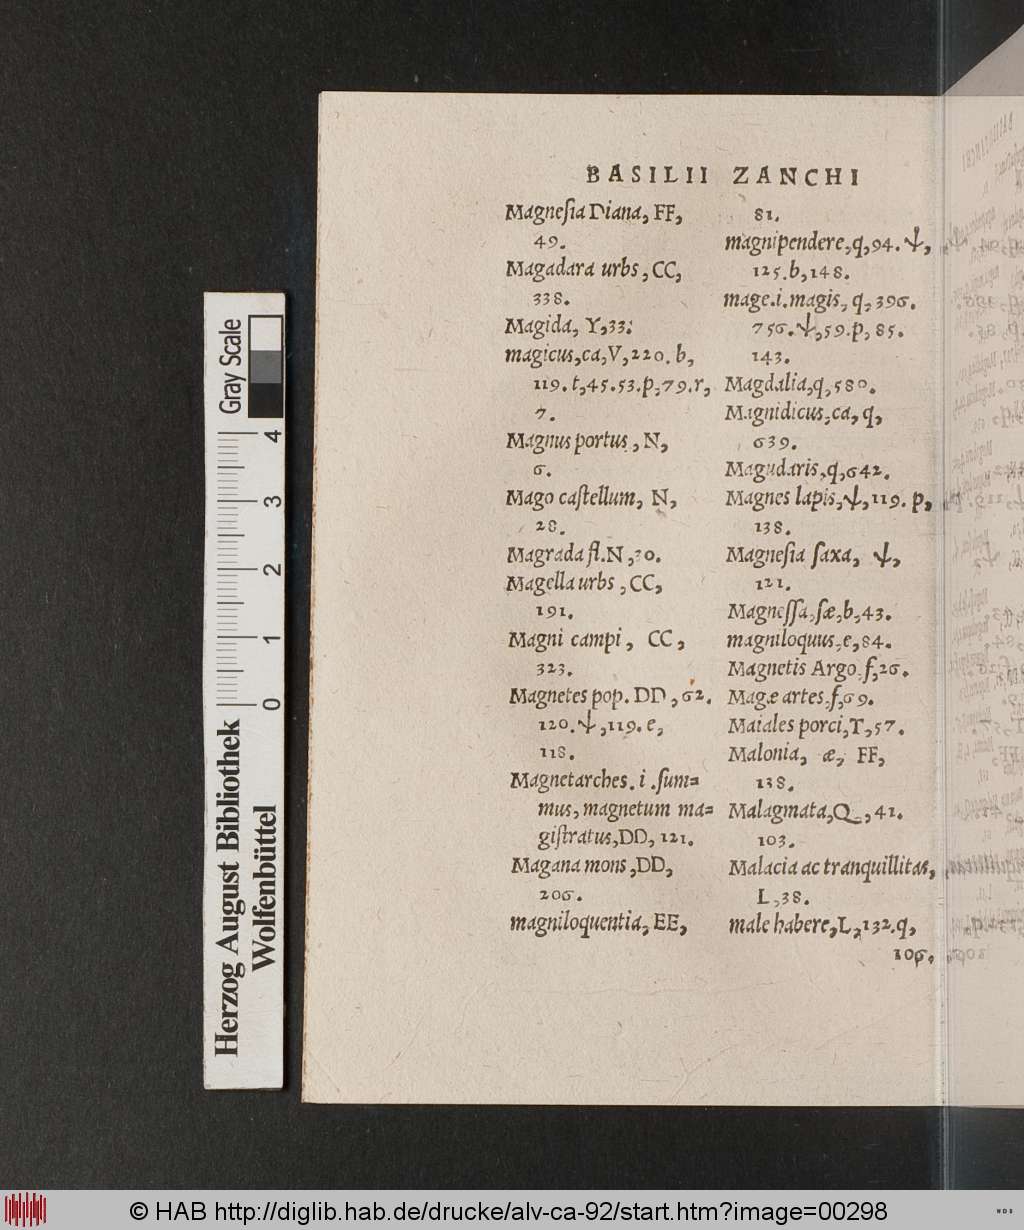 BASILII ZANCHI
Magneſia Diana, FF,
49.
Magadara urbs, CC,
338.
Magida, Y, 33.
magicus, ca, V, 220. b,
119. t, 45. 53. p, 79. r,
7.
Magnus portus, N,
6.
Mago caſtellum, N,
28.
Magrada fl. N, 30.
Magella urbs, CC,
191.
Magni campi, CC,
323.
Magnetes pop. DD, 62.
120. ψ, 119. e,
118.
Magnetarches. i. ſum=
mus, magnetum ma=
giſtratus, DD, 121.
Magana mons, DD,
206.
magniloquentia, EE,
81.
magnipendere, q, 94. ψ,
125. b, 148.
mage. i. magis, q, 396.
756. ψ, 59. p, 85.
143.
Magdalia, q, 580.
Magnidicus, ca, q,
639.
Magudaris, q, 642.
Magnes lapis, ψ, 119. p,
138.
Magneſia ſaxa, ψ,
121.
Magneſſa, ſæ, b, 43.
magniloquus, e, 84.
Magnetis Argo. f, 26.
Magæ artes. f, 69.
Maiales porci, T, 57.
Malonia, æ, FF,
138.
Malagmata, Q, 41.
103.
Malacia ac tranquillitas,
L, 38.
male habere, L, 132. q,
106.
Gray Scale
4
3
2
1
0
Herzog August Bibliothek
Wolfenbüttel
© HAB http://diglib.hab.de/drucke/alv-ca-92/start.htm?image=00298
WDB